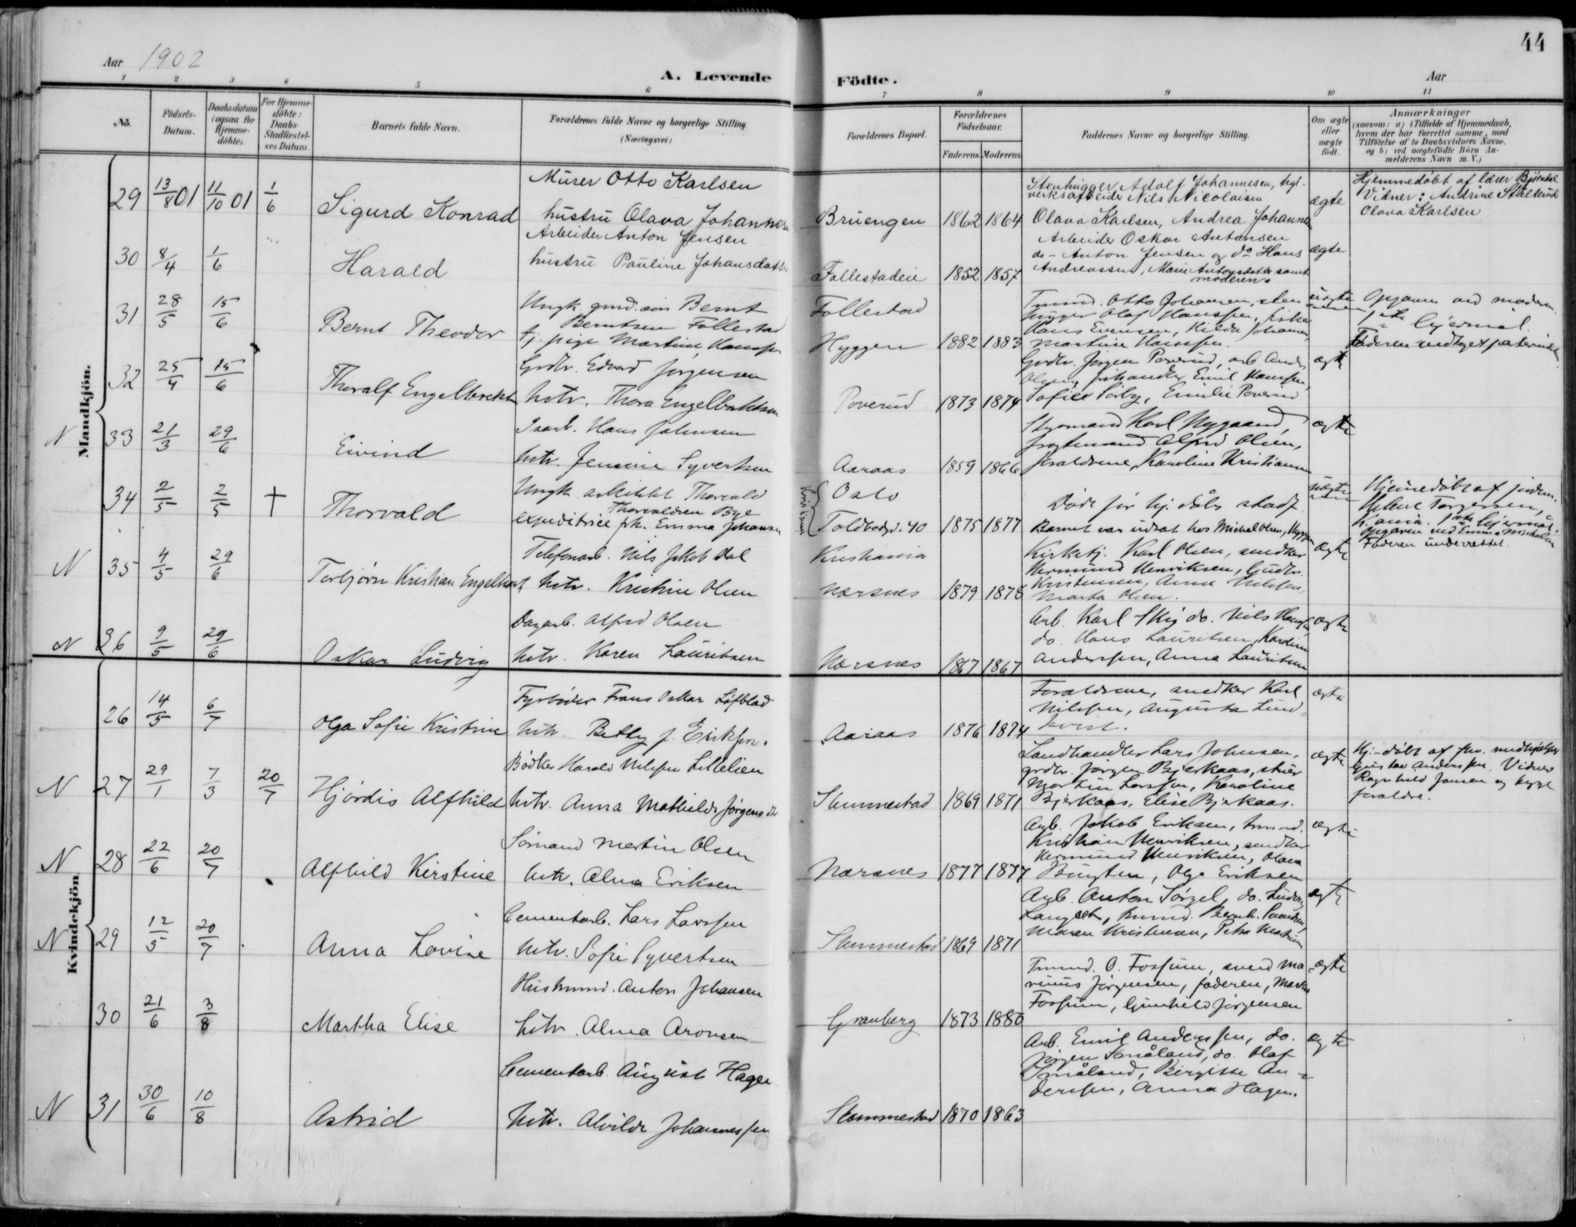 44
Aar 1902
A. Levende Födte.
Aar
1 2 3 4 5 6 7 8 9 10 11
No.
Födsels-Datum.
Daabsdatum (ogsaa for Hjemmedöbte).
For Hjemmedöbte: Daabs-Stadfæstelses Datum.
Barnets fulde Navn.
Forældrenes fulde Navne og borgerlige Stilling (Næringsvei.)
Forældrenes Bopæl.
Forældrenes Födselsaar.
Faderens. Moderens.
Faddernes Navne og borgerlige Stilling.
Om ægte eller uægte födt.
Anmærkninger
(saasom: a) i Tilfælde af Hjemmedaab, hvem der har forrettet samme, med Tilföielse af to Daabsvidners Navne, og b) ved uægtefödte Börn Anmelderens Navn m. V.)
Mandkjön.
29 13/8 01 11/10 01 1/6 Sigurd Konrad
Murer Otto Karlsen
hustru Olava Johannes
Bruengen 1862 1864
Stenhugger Adolf Johannesen, tegl-
verksarbeider Nils Nicolaisen
Olava Karlsen, Andrea Johannes
ægte
Hjemmedöbt af lærer
Vidner: Andrine
Olava Karlsen
30 8/4 1/6 Harald
Arbeider Anton Jensen
hustru Pauline Johansdatter
Follestadeie 1852 1857
Arbeider Oskar Antonsen
do - Anton Jensen og do Hans
Andreassen, Marie Antonsdatter samt
moderen.
ægte
31 28/5 15/6 Bernt Theodor
Ungk. gmd.sön Bernt
Berntsen Follestad
tj. pige Martine Hansen
Follestad
Hyggen 1882 1883
Otto Johansen,
Olaf Hanssen,
Hans Evensen, Hilda Johansen
Martine Hanssen
uægte
Opgaven ved moderen
1ste leiermål.
Faderen vedtaget paterniteten
32 25/4 15/6 Thoralf Engelbrekt
Grdbr. Edvard Jørgensen
hstr. Thora Engelbrektsen
Poverud 1873 1874
Grdbr. Jørgen Poverud, arb. Anders
Olsen, Emil Hanssen,
Sofie Sørby, Emilie Poverud
ægte
N 33 21/3 29/6 Eivind
Isarb. Hans Johnsen
hstr. Jensine Syvertsen
Aaraas 1859 1866
Styrmand Karl Nygaard,
Alfred Olsen,
forældrene, Karoline Kristiansen
ægte
34 2/5 2/5 † Thorvald
Ungk. arkitekt Thorvald
Thorvaldsen Bye
expeditrice frk. Emma Johansen
Oslo
Toldbodgd. 40 1875 1877
Kristiania
Døde før hj. dåbs stadf.
Barnet var udsat hos Michal Olsen, Hyggen
uægte
Hjemmedöbt af jordm.
Torgersen,
1ste leiermål.
Faderen underrettet.
N 35 4/5 29/6 Torbjørn Kristian Engelhart
Telefonarb. Nils Jakob Dal
hstr. Kristine Olsen
Nærsnes 1879 1878
Kirketj. Karl Olsen, snedker
Hermund Henriksen, Gudbr.
Kristensen, Anna Nilssen,
Marta Olsen.
ægte
N 36 9/5 29/6 Oskar Ludvig
Dagarb. Alfred Olsen
hstr. Karen Lauritsen
Nærsnes 1867 1867
Arb. Karl Skij do. Nils Hanssen,
do. Hans Lauritsen, Karoline
Anderssen, Anna Lauritsen
ægte
Kvindekjön.
26 14/5 6/7 Olga Sofie Kristine
Fyrbøder Frans Oskar Löfblad
hstr. Betty J. Erikssen.
Aaraas 1876 1874
Forældrene, snedker Karl
Nilssen, Augusta Lind
kvist.
ægte
N 27 29/1 7/3 20/7 Hjördis Alfhild
Bödker Harald Nilssen Lillelien
hstr. Anna Mathilde Jørgensdtr
Slemmestad 1869 1871
Landhandler Lars Johnsen,
grdbr. Jørgen Bjerkaas,
Martin Larssen, Karoline
Bjerkaas, Elise Bjerkaas.
ægte
Hj.-döbt af
Gustav Anderssen. Vidner
Ragnhild Jansen og
forældre.
N 28 22/6 20/7 Alfhild Kirstine
Sömand Martin Olsen
hstr. Alma Eriksen
Nærsnes 1877 1877
Arb. Jakob Eriksen,
Kristian Henriksen, snedker
Hermund Henriksen, Olava
Olga Eriksen
ægte
N 29 12/5 20/7 Anna Lovise
Cementarb. Lars Larssen
hstr. Sofie Syvertsen
Slemmestad 1869 1871
Arb. Anton Sørgel, do.
Langset,
Maren Kristensen, Petra
ægte
30 21/6 3/8 Martha Elise
Husmand. Anton Johansen
hstr. Alma Aronsen
Granberg 1873 1880
O. Fossum, svend Ma-
rinus Jørgensen, faderen,
Fossum, Gunhild Jørgensen
ægte
N 31 30/6 10/8 Astrid
Cementarb. August Hagen
hstr. Alvilde Johannessen
Slemmestad 1870 1863
Arb. Emil Anderssen, do.
Jørgen Småland, do. Olaf
Småland, Birgitte An-
derssen, Anna Hagen.
ægte